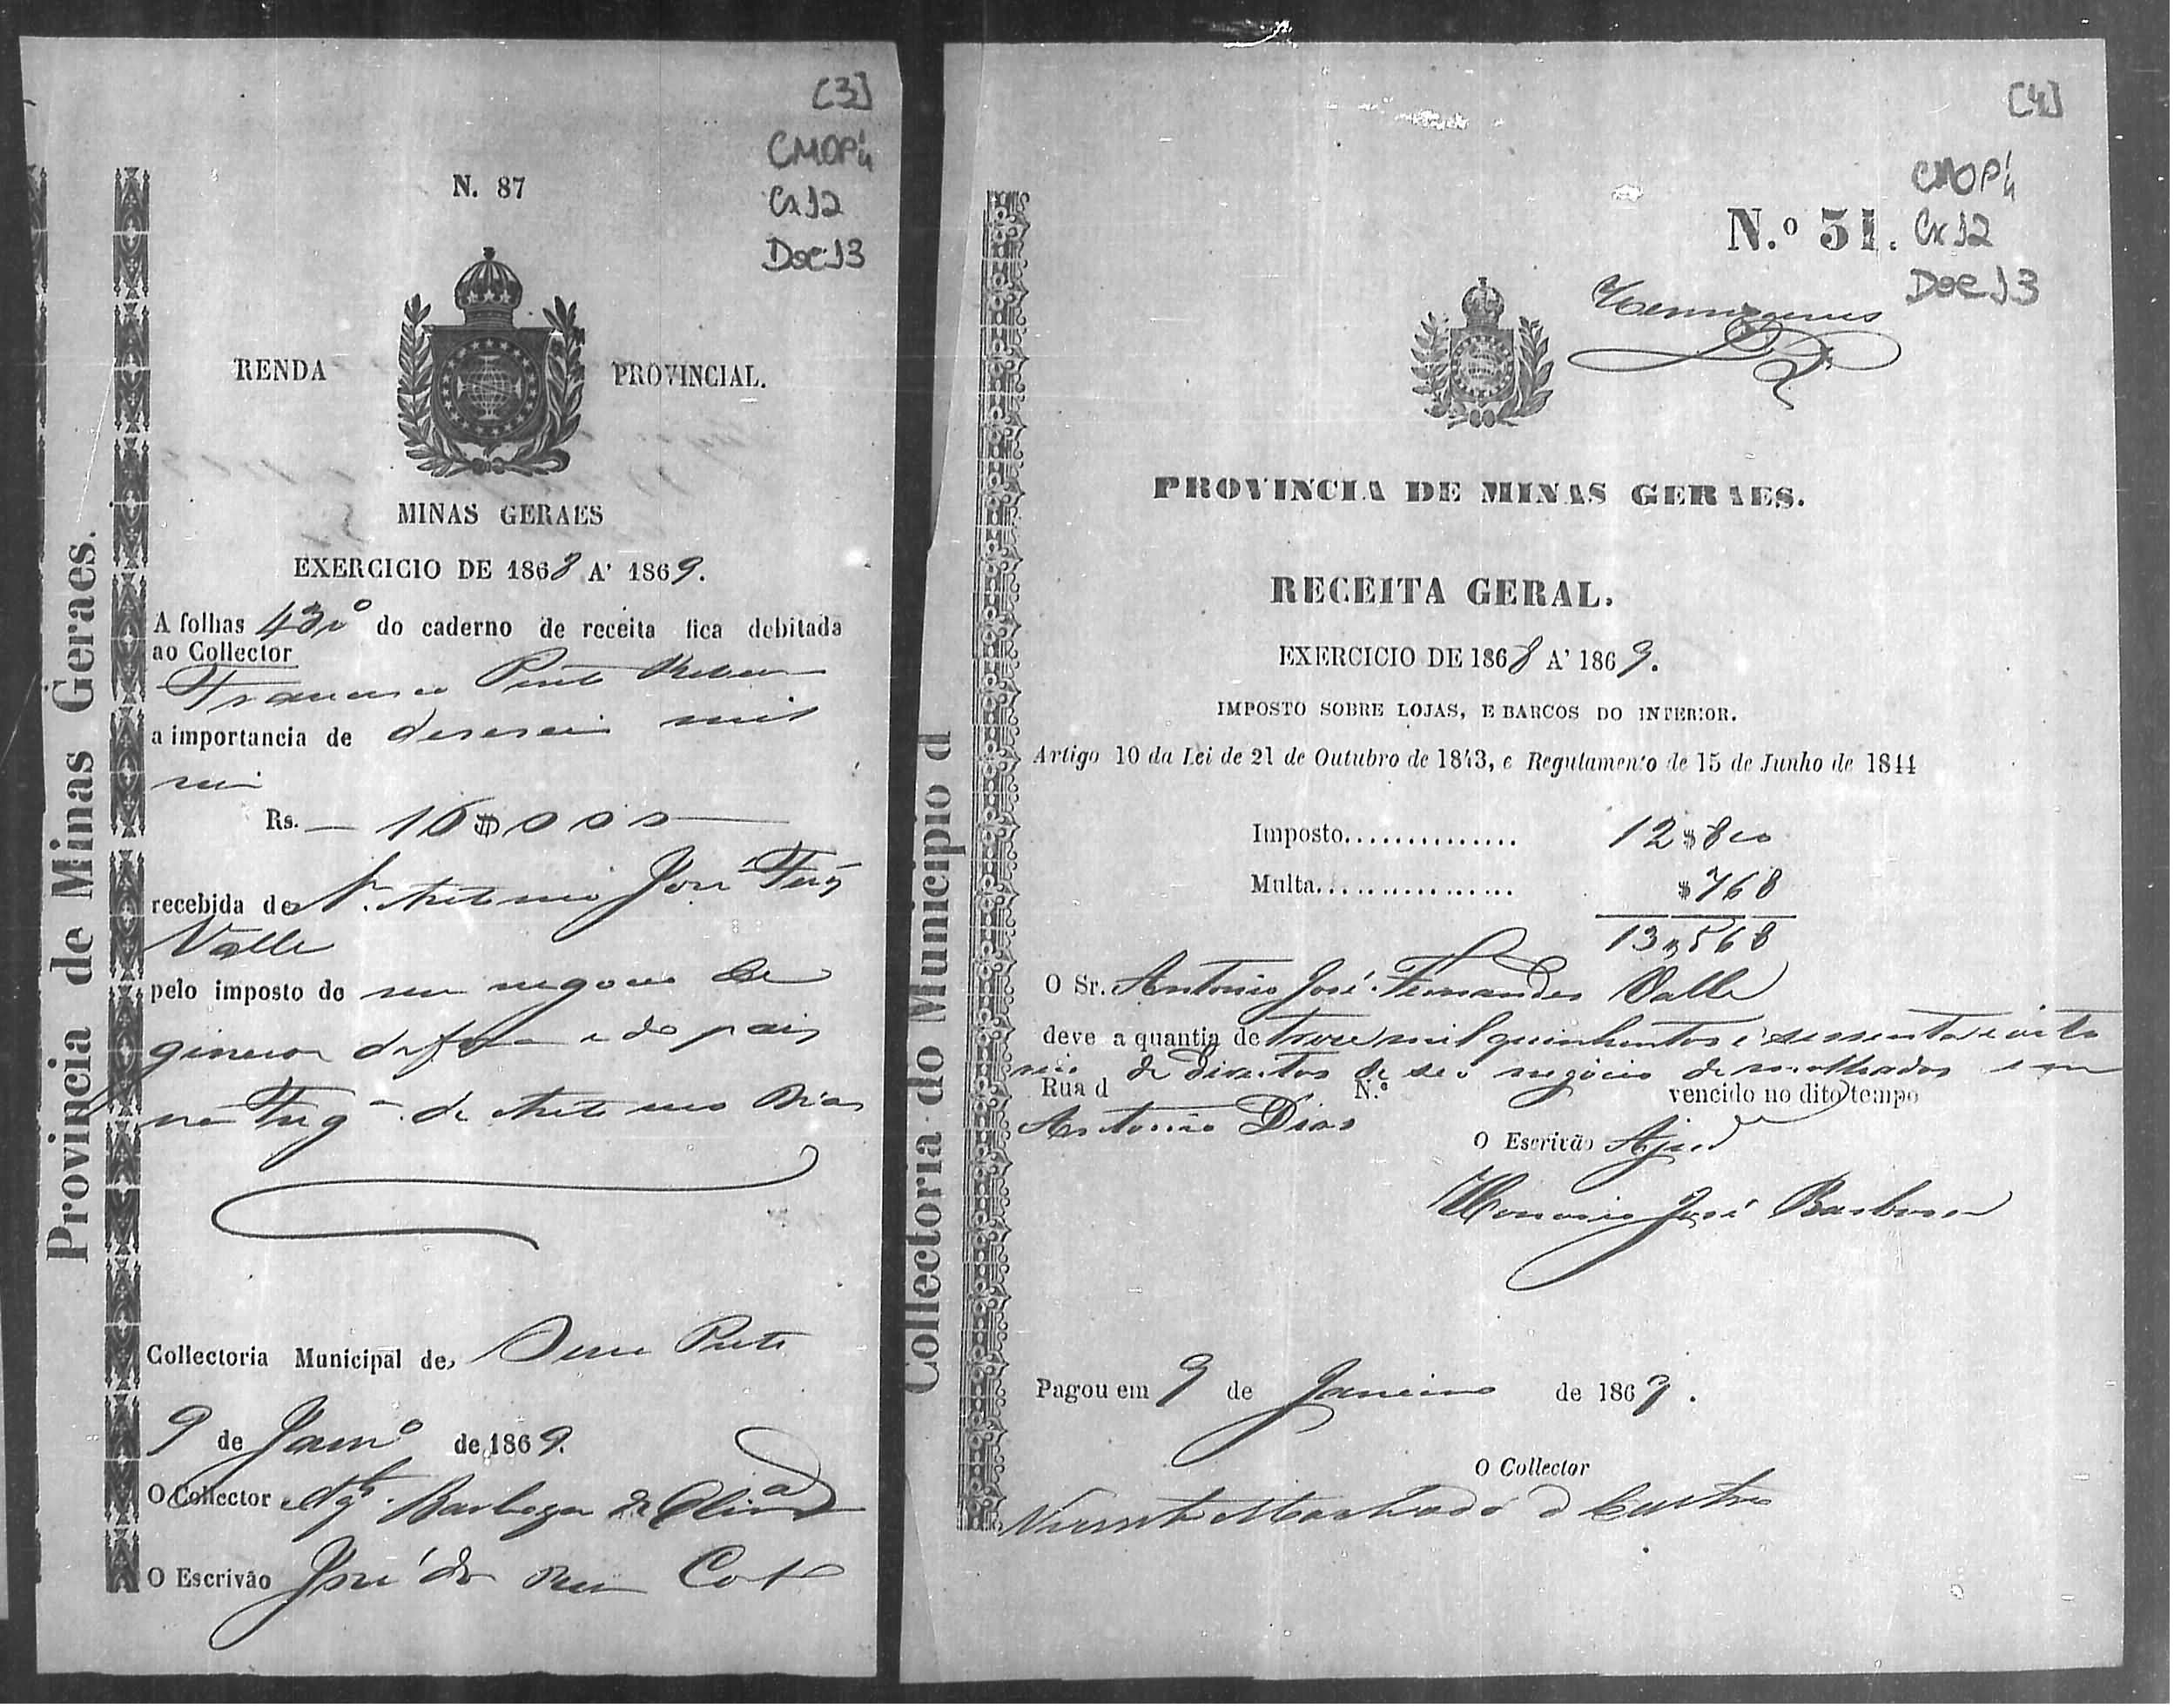 [3]
CMOP 4
Cx 12
Doc 13
N. 87
RENDA PROVINCIAL.
MINAS GERAES
EXERCICIO DE 1868 A' 1869.
A folhas do caderno de receita fica debitada
ao Collector
Francisco Pinto
a importancia de deseseis mil
reis
Rs. — 16$000 —
recebida do Sr. Antonio José Frz
Valle
pelo imposto de seu negocio de
generos de fora e do pais
na Freg.a de Antonio Dias
Collectoria Municipal de Ouro Preto
9 de Janro de 1869.
O Collector Barboza de Olivra
O Escrivão José da Costa
Provincia de Minas Geraes.
[4]
CMOP 4
Cx 12
Doc 13
N.º 51.
Hermogenes
PROVINCIA DE MINAS GERAES.
RECEITA GERAL.
EXERCICIO DE 1868 A' 1869.
IMPOSTO SOBRE LOJAS, E BARCOS DO INTERIOR.
Artigo 10 da Lei de 21 de Outubro de 1843, e Regulamento de 15 de Junho de 1844
Imposto............... 12$800
Multa................. $768
13$568
O Sr. Antonio José Fernandes Valle
deve a quantia de treze mil quinhentos e sessenta e oito
reis de direitos de seu negocio de molhados em
Rua d N.º vencido no dito tempo
Antonio Dias
O Escrivão Ajud
Honorio José Barbosa
Pagou em 9 de Janeiro de 1869.
O Collector
Vicente Machado de Castro
Collectoria do Municipio d